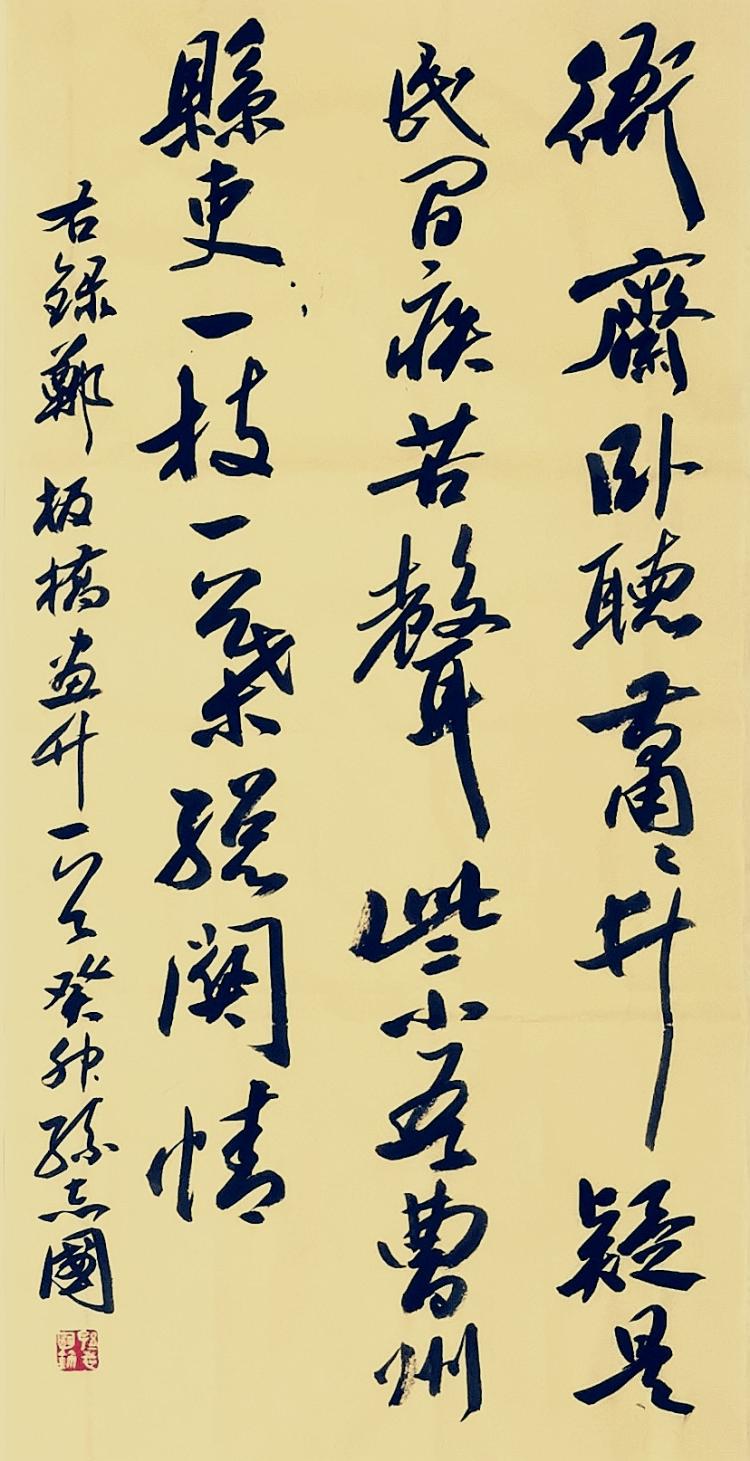 衙齋卧聽蕭〻竹疑是
民間疾苦聲些小吾曹州
縣吏一枝一葉總關情
右錄鄭板橋畫竹一首癸卯孫志國